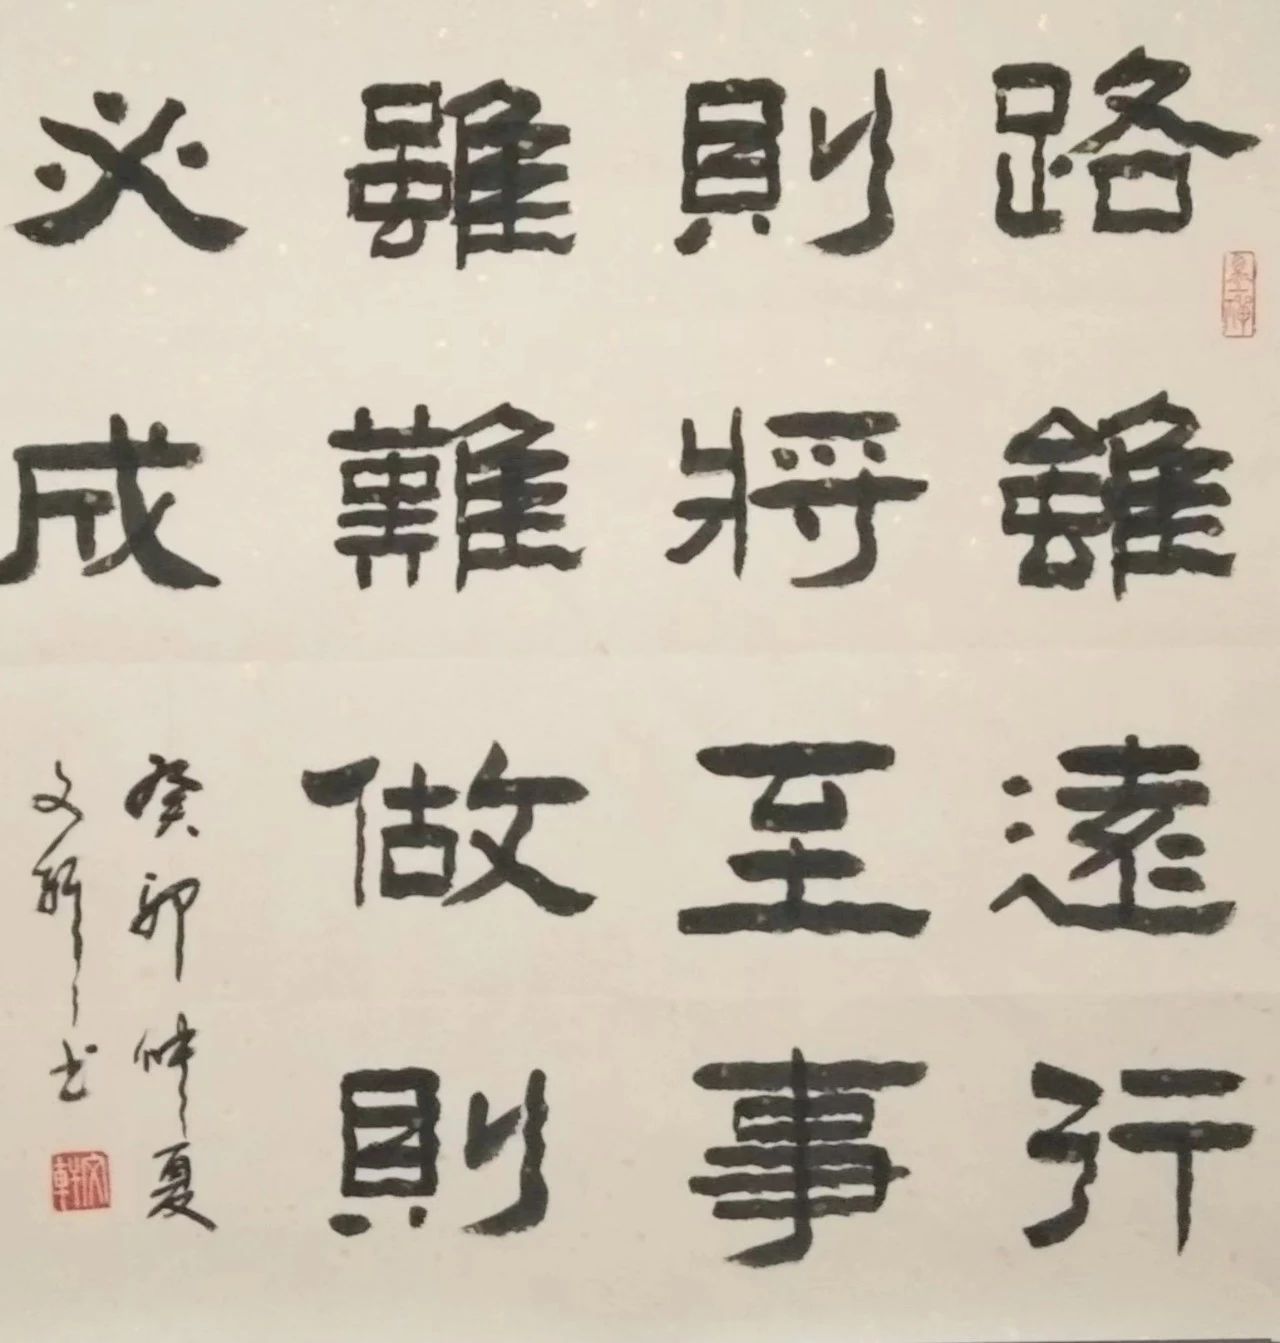 路雖遠行
則將至事
雖難做則
必成
癸卯仲夏
文軒书
文軒